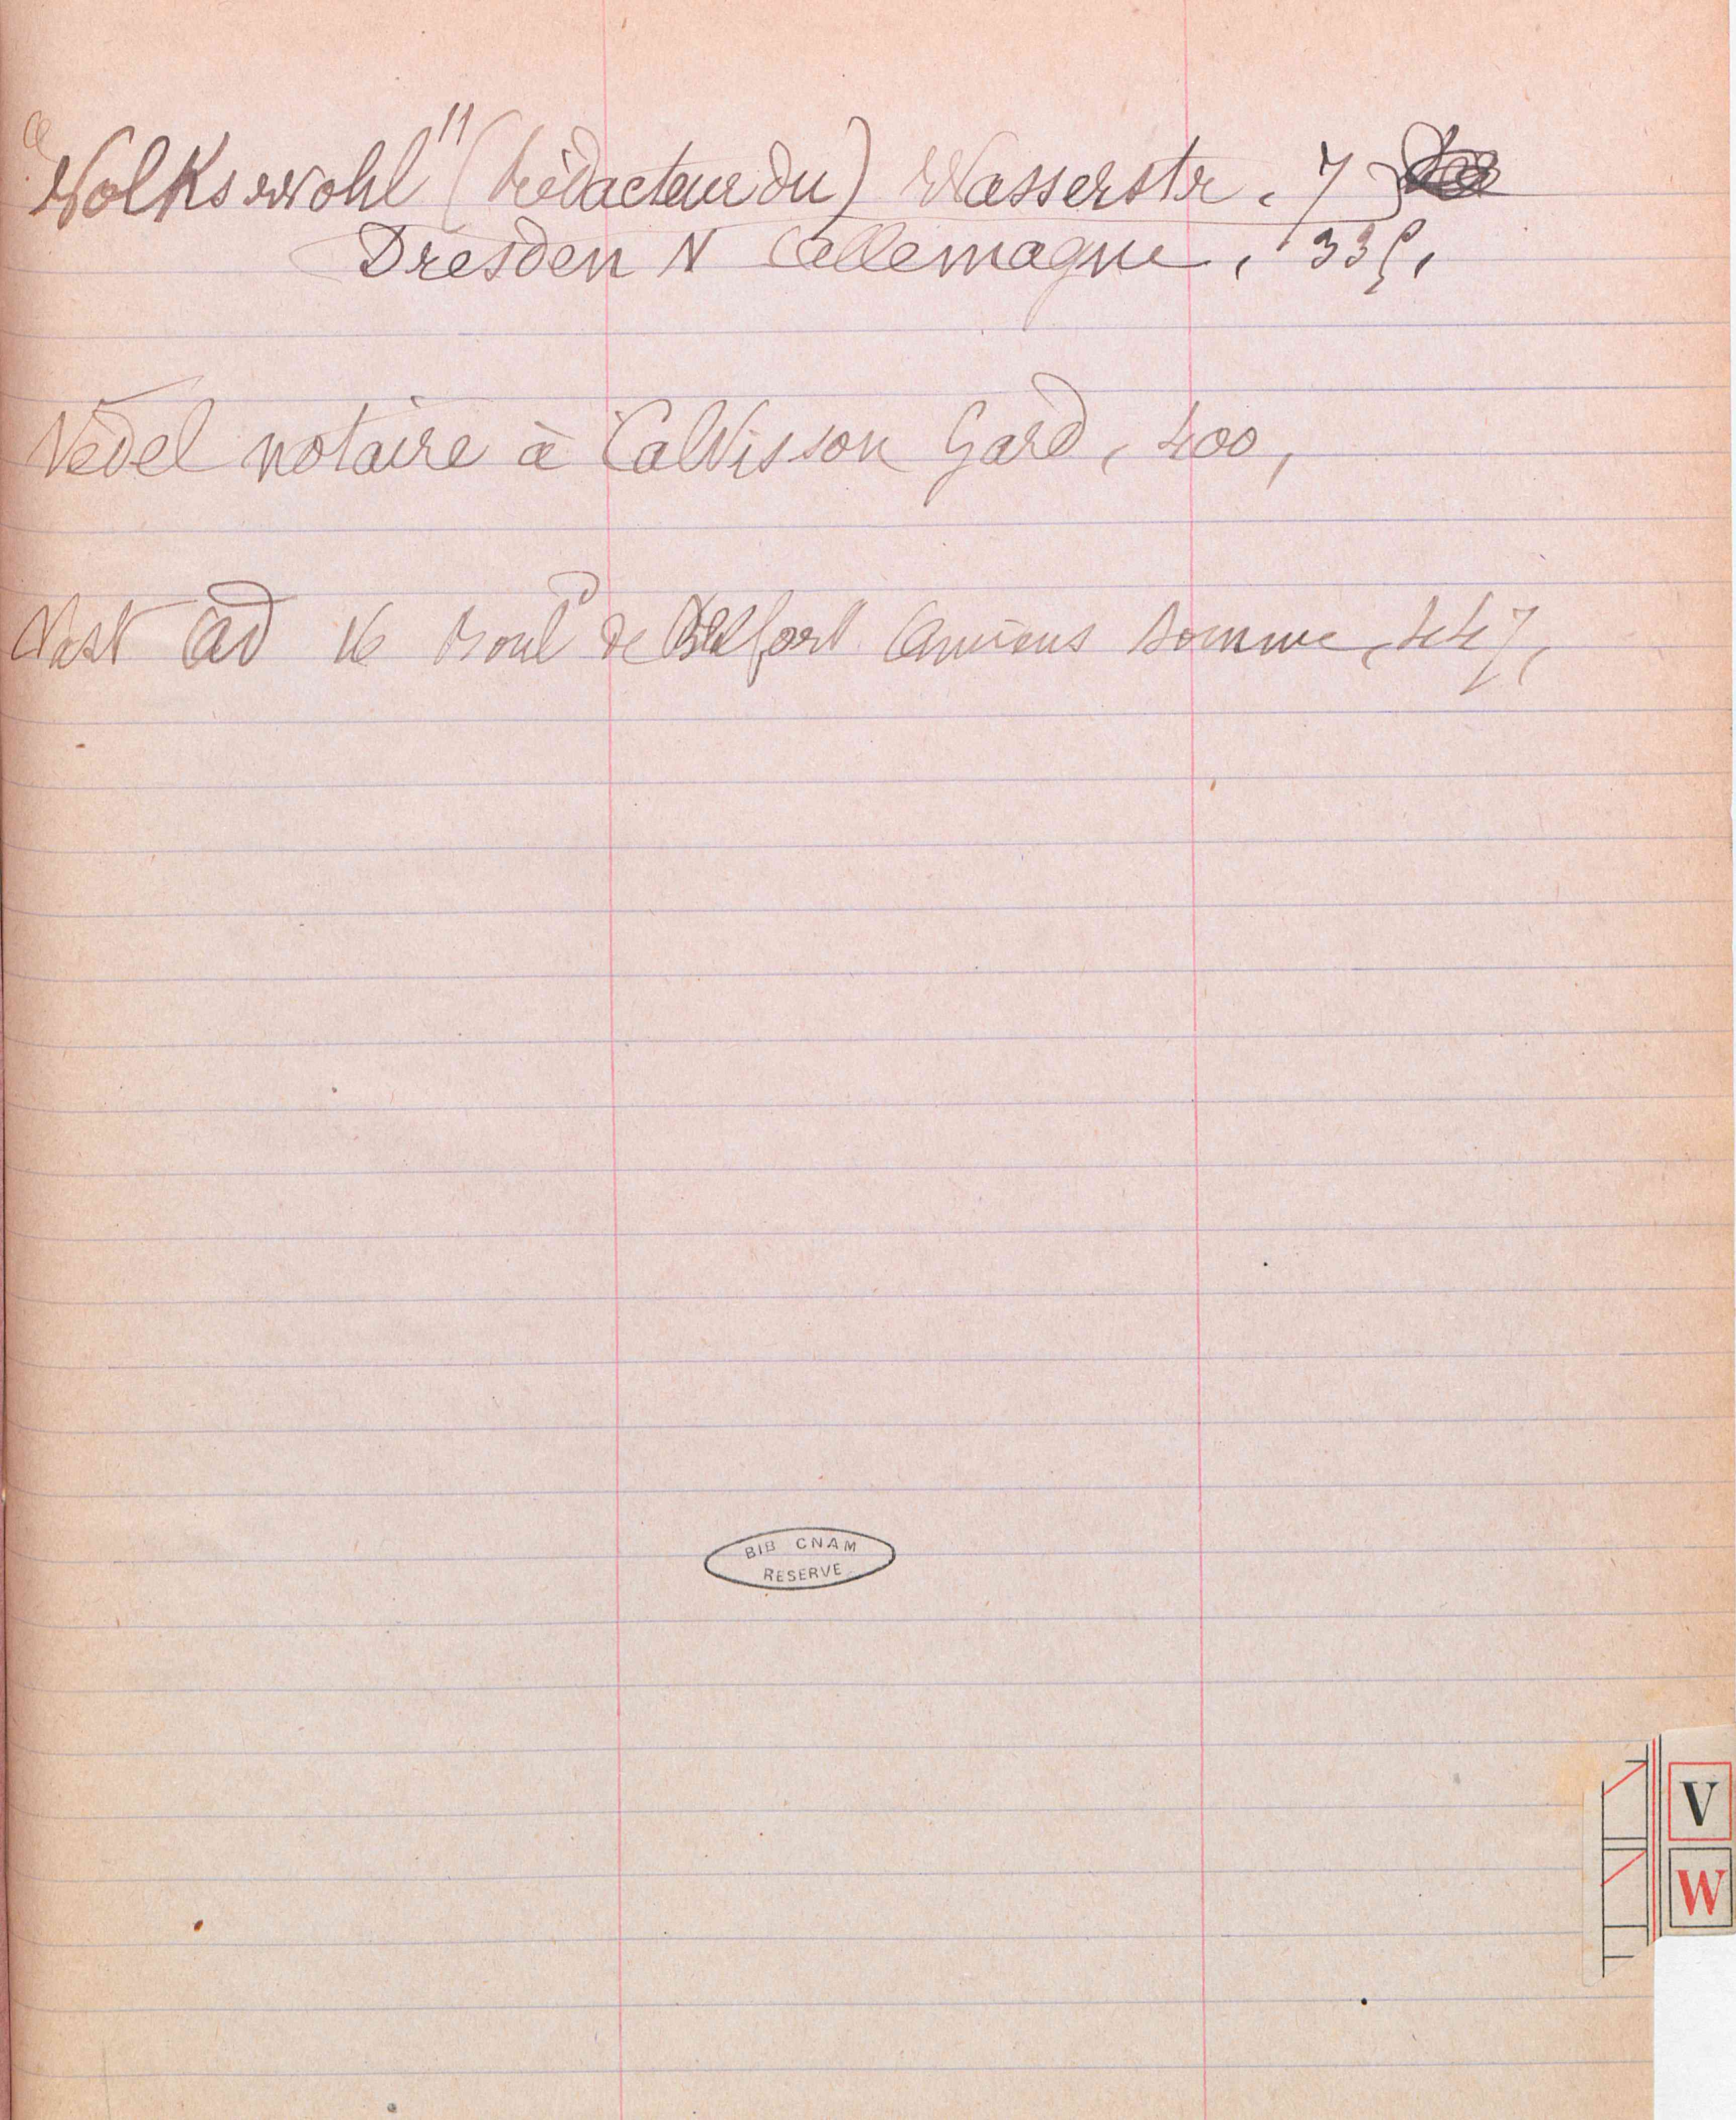 "Volkswohl" (Rédacteur du) Wasserstr. 7
Dresden N Allemagne, 335,
Vedel notaire à Calvisson Gard, 400,
Vast Ad 16 Boul^d de Belfort Amiens Somme, 447,
BIB CNAM
RESERVE
V
W